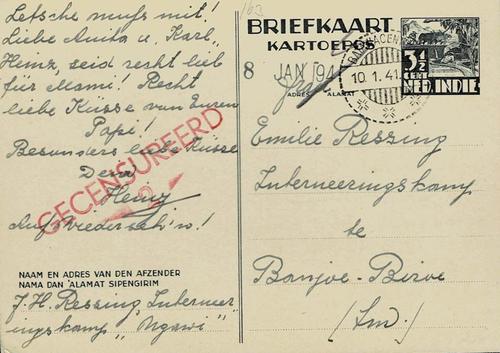 Letsche muss mit!
Liebe Anita u. Karl,
Heinz, seid recht lieb
für Mami! Recht
liebe Küsse von Euren
Papi!
Besonders liebe Küsse
Dein
Heinz
Auf Wiederseh'n!
GECENSUREERD
NAAM EN ADRES VAN DEN AFZENDER
NAMA DAN 'ALAMAT SIPENGIRIM
J. H. Ressing, Interneer-
ingskamp „Ngawi"
63
BRIEFKAART
KARTOEPOS
8 JAN 1941
ADRES ALAMAT
10.1.41
3½
CENT
NED. INDIE
Emilie Ressing
Interneeringskamp
te
Banjoe-Biroe
(Jav.)